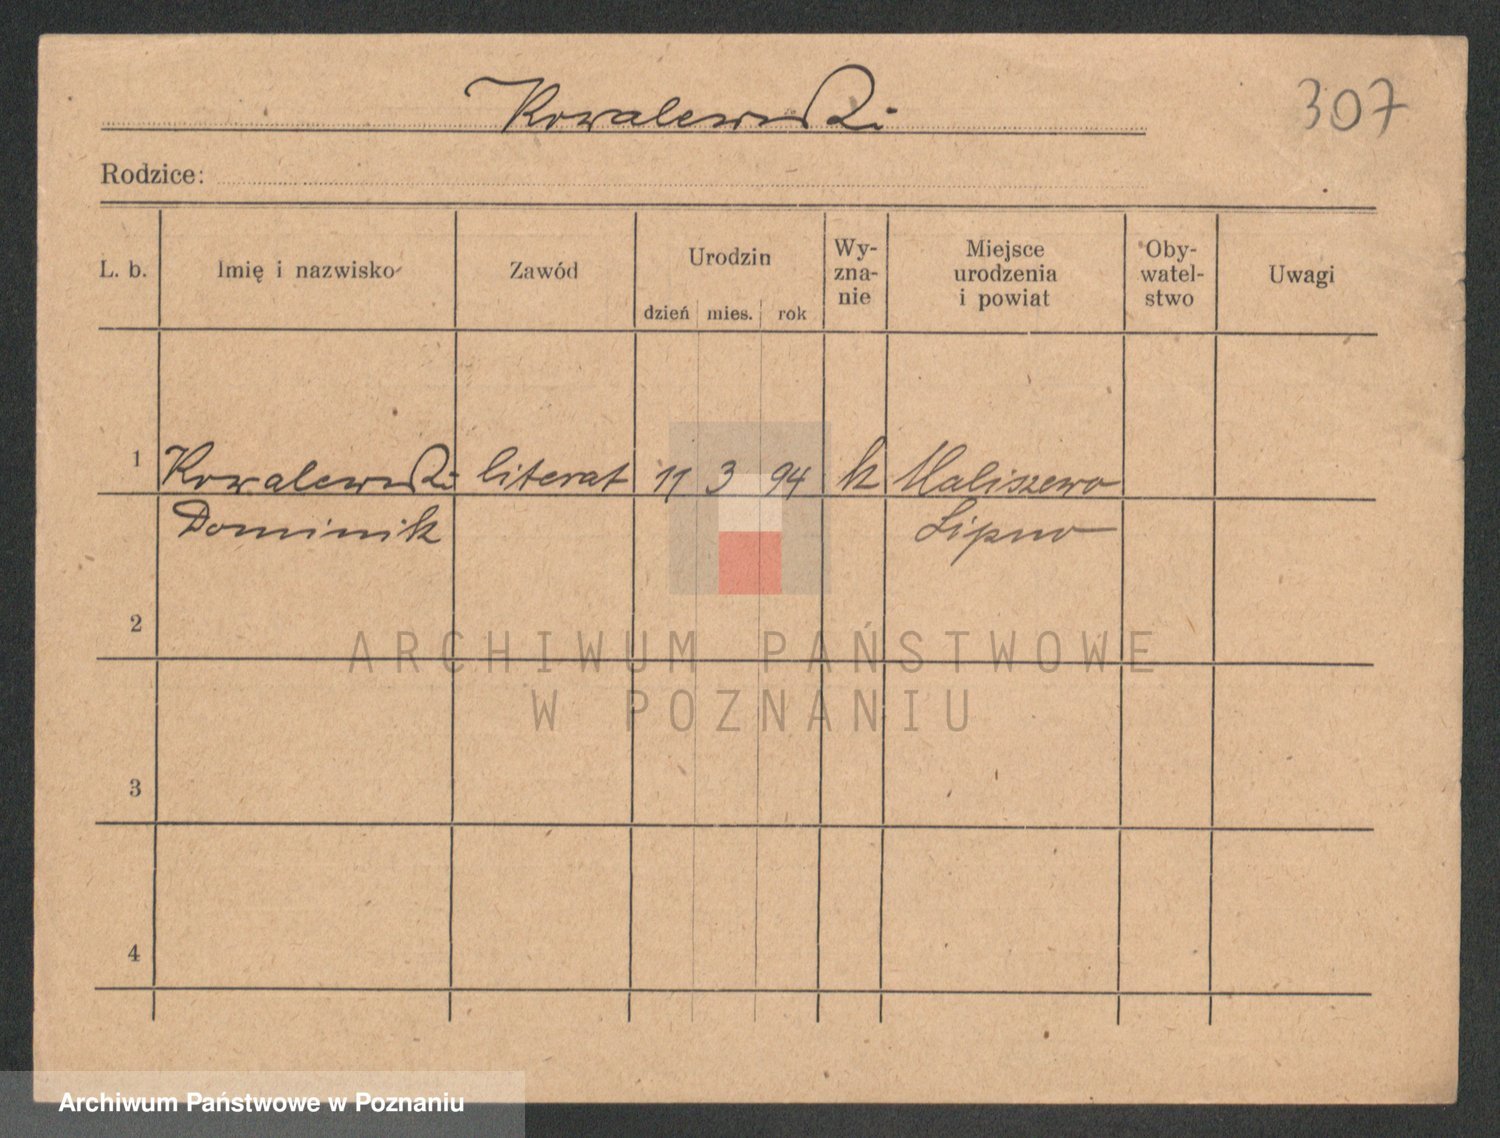 Kowalewski
307
Rodzice:
L. b. Imię i nazwisko Zawód Urodzin dzień mies. rok Wy-zna-nie Miejsce urodzenia i powiat Oby-watel-stwo Uwagi
1 Kowalewski literat 11 3 94 k Maliszewo
Dominik Lipno
2
3
4
ARCHIWUM PAŃSTWOWE
W POZNANIU
Archiwum Państwowe w Poznaniu